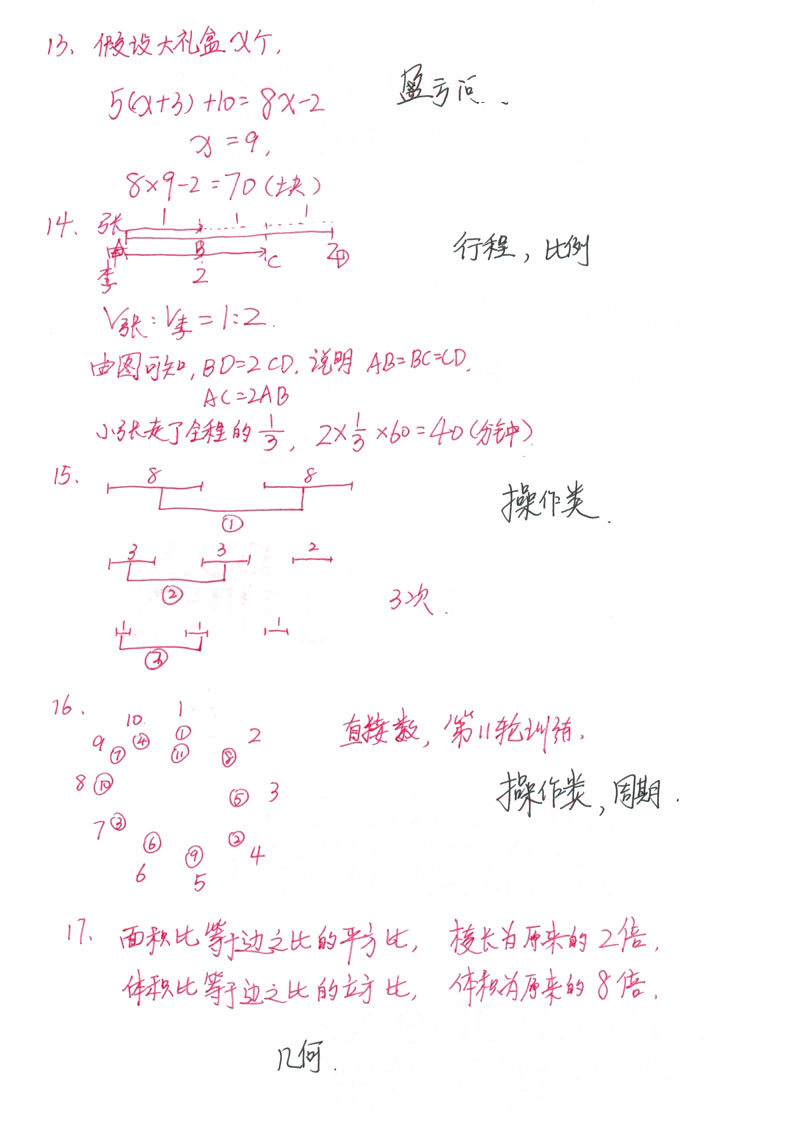 13、假设大礼盒x个，
5(x+3)+10=8x-2
盈亏问...
x=9,
8×9-2=70(块)
14、张 1 1 1
A 甲 B C 乙 D
李 2
行程，比例
V张:V李=1:2.
由图可知, BD=2CD. 说明 AB=BC=CD,
AC=2AB
小张走了全程的1/3, 2×1/3×60=40(分钟)
15. 8 8
①
操作类.
3 3 2
②
3次.
1 1 1
③
16.
10 1
9 ⑦ ④ ① ⑪ ⑧ 2
直接数, 第11轮训练.
8 ⑩ ⑤ 3
操作类, 周期.
7 ③ ⑥ ⑨ ② 4
6 5
17. 面积比等于边之比的平方比, 棱长为原来的2倍,
体积比等于边之比的立方比, 体积为原来的8倍.
几何.